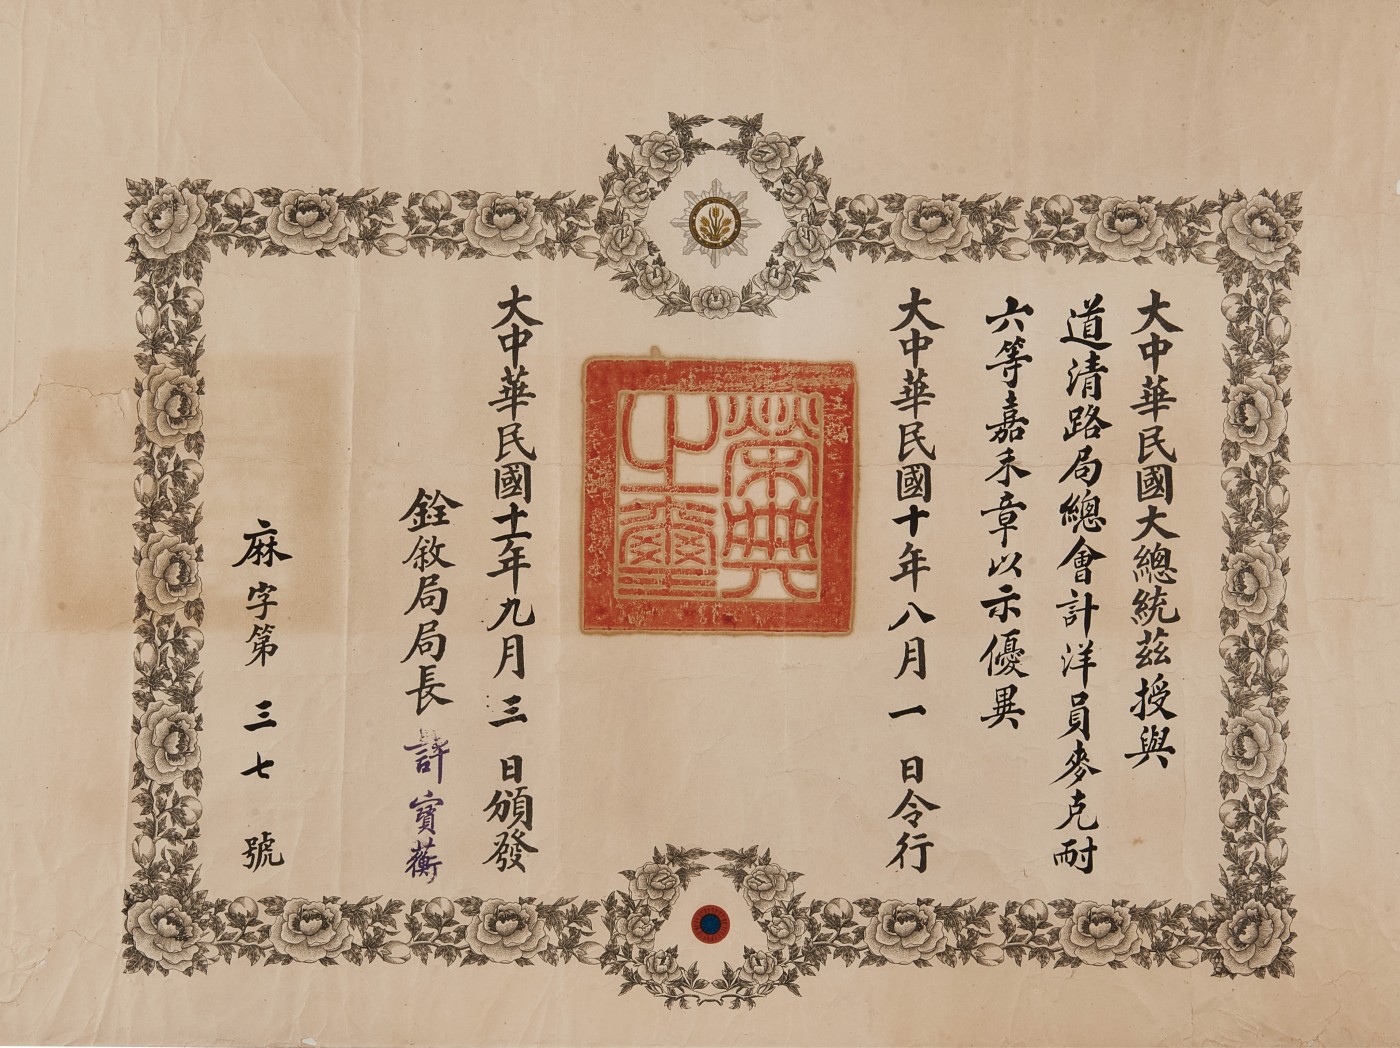 大中華民國大總統茲授與
道清路局總會計洋員麥克耐
六等嘉禾章以示優異
大中華民國十年八月一日令行
榮典之璽
大中華民國十一年九月三日頒發
銓敘局局長許寶蘅
麻字第三七號